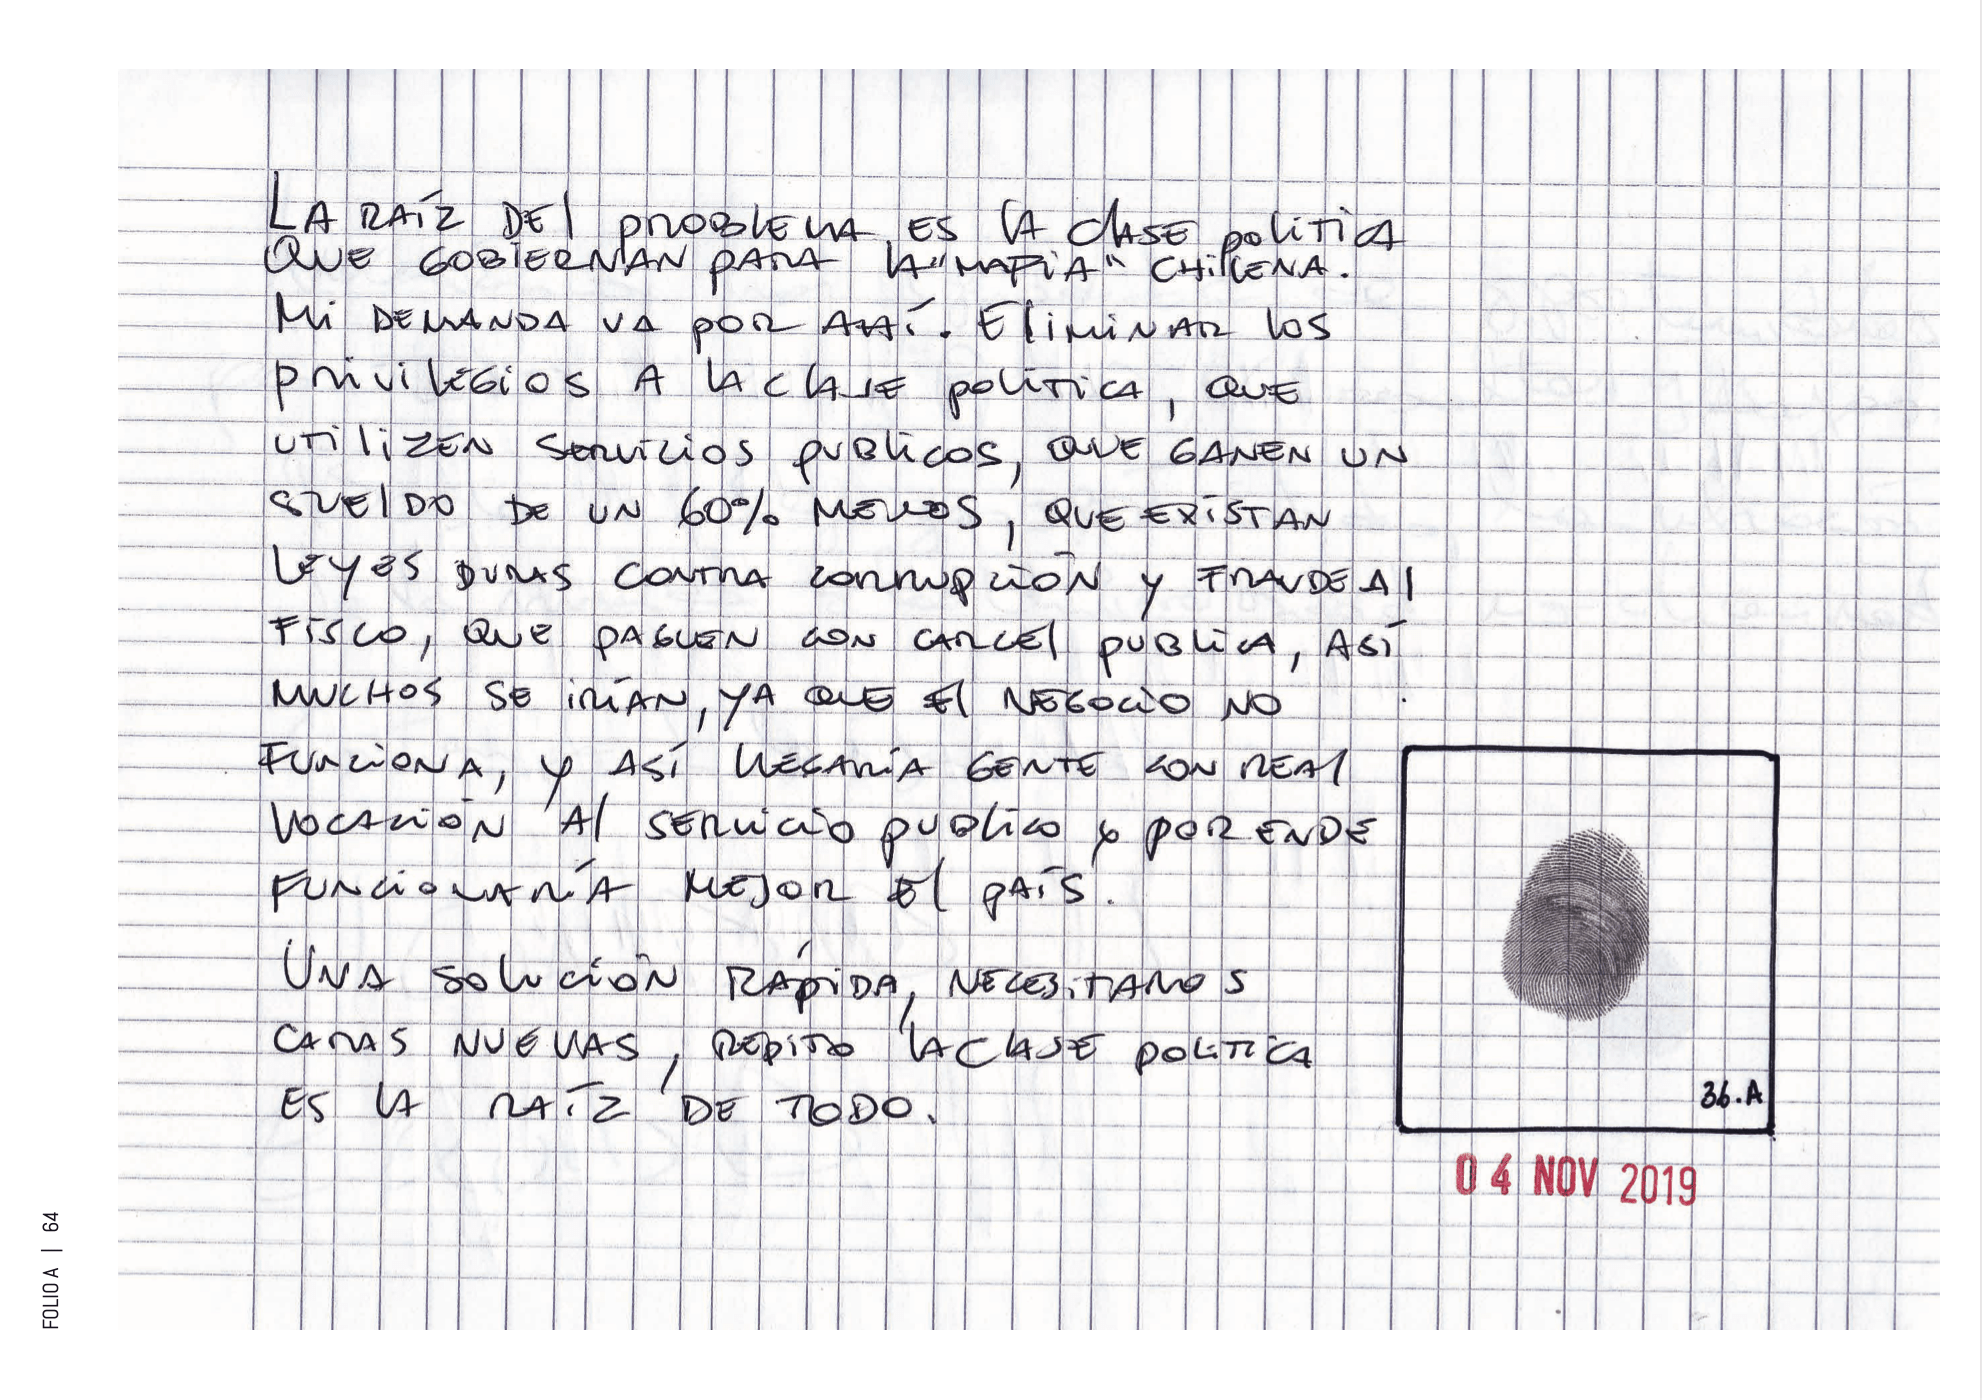 LA RAÍZ DEl pROBlEMA, ES lA clASE políTiCA
QUE GOBIERNAN pARA lA "MAFIA" CHilENA.
Mi DEMANDA VA pOR AHÍ. EliMiNAR lOS
pRiVilEGiOS A lA clASE políTiCA, QUE
UTilizEN SERViCiOS pUBlicOS, QUE GANEN UN
SUElDO DE UN 60% MENOS, QUE EXISTAN
lEYES DURAS CONTRA CORRUpCiÓN y FRAUDE Al
FISCO, QUE pAGUEN CON CARCEl pUBliCA, ASÍ
MUCHOS SE iRÍAN, YA QUE El NEGOCiO NO
FUNCiONA, y ASÍ llEGARÍA GENTE CON REAl
VOCACiÓN Al SERViCiO pUBlicO y pOR ENDE
FUNCiONARÍA MEJOR El pAÍS.
UNA SOlUCiÓN RÁpiDA, NECESiTAMOS
CARAS NUEVAS, REpiTO lA ClASE pOlITiCA
ES lA RAÍZ DE TODO.
36.A
04 NOV 2019
FOLIO A | 64